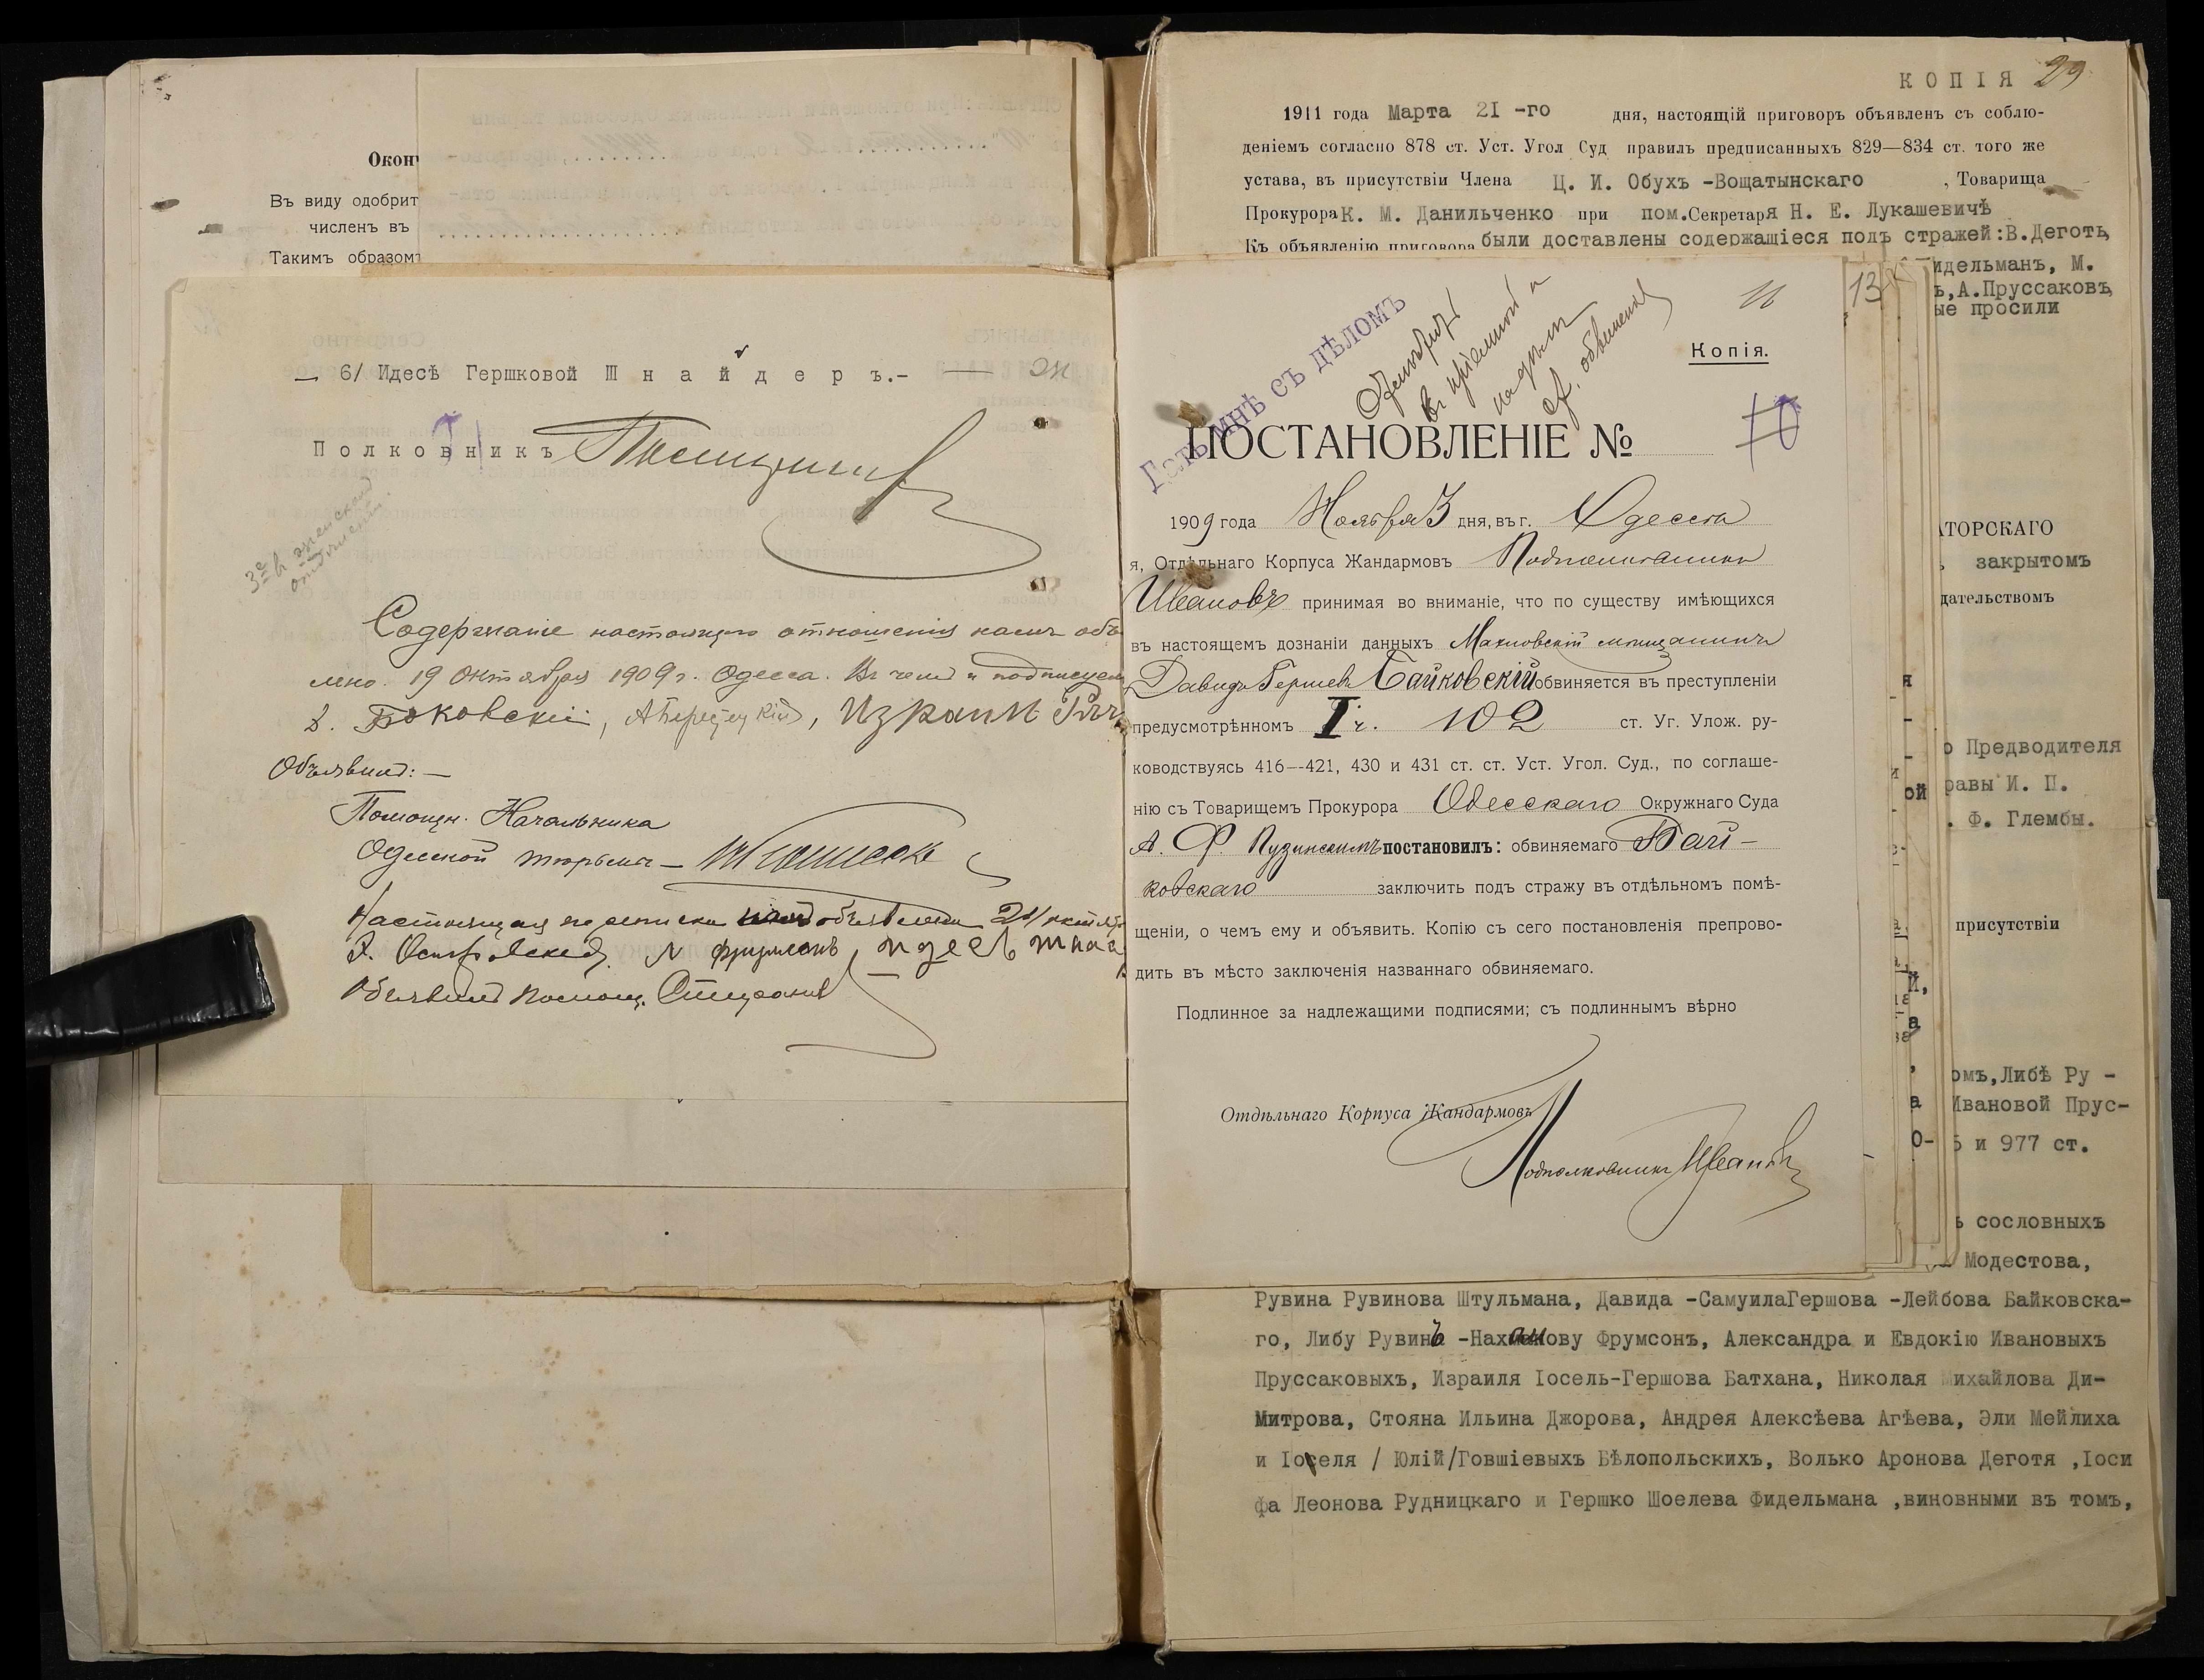 Оконч
Въ виду одобрит
численъ въ
Такимъ образомъ
6/ Идесѣ Гершковой Шнайдеръ.-
Полковникъ
3ѐ въ женской
Содержаніе настоящаго отношенія намъ объ
лено. 19 Октября 1909 г. Одесса. Въ чемъ и подписуем
Объявилъ: —
Помощн. Начальника
Одесской тюрьмы —
Настоящая переписка объявлена 21 октяб
Объявилъ Помощ.
КОПІЯ 29
1911 года Марта 21 -го дня, настоящій приговоръ объявленъ съ соблю-
деніемъ согласно 878 ст. Уст. Угол Суд правилъ предписанныхъ 829—834 ст. того же
устава, въ присутствіи Члена Ц. И. Обухъ -Вощатынскаго , Товарища
Прокурора К. М. Данильченко при пом.Секретаря Н. Е. Лукашевичѣ
Къ объявленію приговора были доставлены содержащіеся подъ стражей:В.Деготь,
идельманъ, М.
ъ,А.Пруссаковъ,
ые просили
13
Копія.
Есть мнѣ съ дѣломъ
ПОСТАНОВЛЕНІЕ № 70
1909 года Ноября 3 дня, въ г. Одесса
я, Отдѣльнаго Корпуса Жандармовъ Подполковникъ
Ивановъ принимая во вниманіе, что по существу имѣющихся
въ настоящемъ дознаніи данныхъ Махновскій мѣщанинъ
Давидъ Гершевъ Байковскій обвиняется въ преступленіи
предусмотрѣнномъ I ч. 102 ст. Уг. Улож. ру-
ководствуясь 416—421, 430 и 431 ст. ст. Уст. Угол. Суд., по соглаше-
нію съ Товарищемъ Прокурора Одесскаго Окружнаго Суда
А. Ф. постановилъ: обвиняемаго Бай-
ковскаго заключить подъ стражу въ отдѣльномъ помѣ-
щеніи, о чемъ ему и объявить. Копію съ сего постановленія препрово-
дить въ мѣсто заключенія названнаго обвиняемаго.
Подлинное за надлежащими подписями; съ подлиннымъ вѣрно
Отдѣльнаго Корпуса Жандармовъ
Подполковникъ Ивановъ
АТОРСКАГО
закрытомъ
дательствомъ
о Предводителя
равы И. П.
. Ф. Глембы.
присутствіи
омъ,Либѣ Ру -
Ивановой Прус-
5 и 977 ст.
ъ сословныхъ
Модестова,
Рувина Рувинова Штульмана, Давида -СамуилаГершова -Лейбова Байковска-
го, Либу Рувинъ -Нахманову Фрумсонъ, Александра и Евдокію Ивановыхъ
Пруссаковыхъ, Израиля Іосель-Гершова Батхана, Николая Михайлова Ди-
Митрова, Стояна Ильина Джорова, Андрея Алексѣева Агѣева, Эли Мейлиха
и Іоселя / Юлій/Говшіевыхъ Бѣлопольскихъ, Волько Аронова Деготя ,Іоси
фа Леонова Рудницкаго и Гершко Шоелева Фидельмана ,виновными въ томъ,